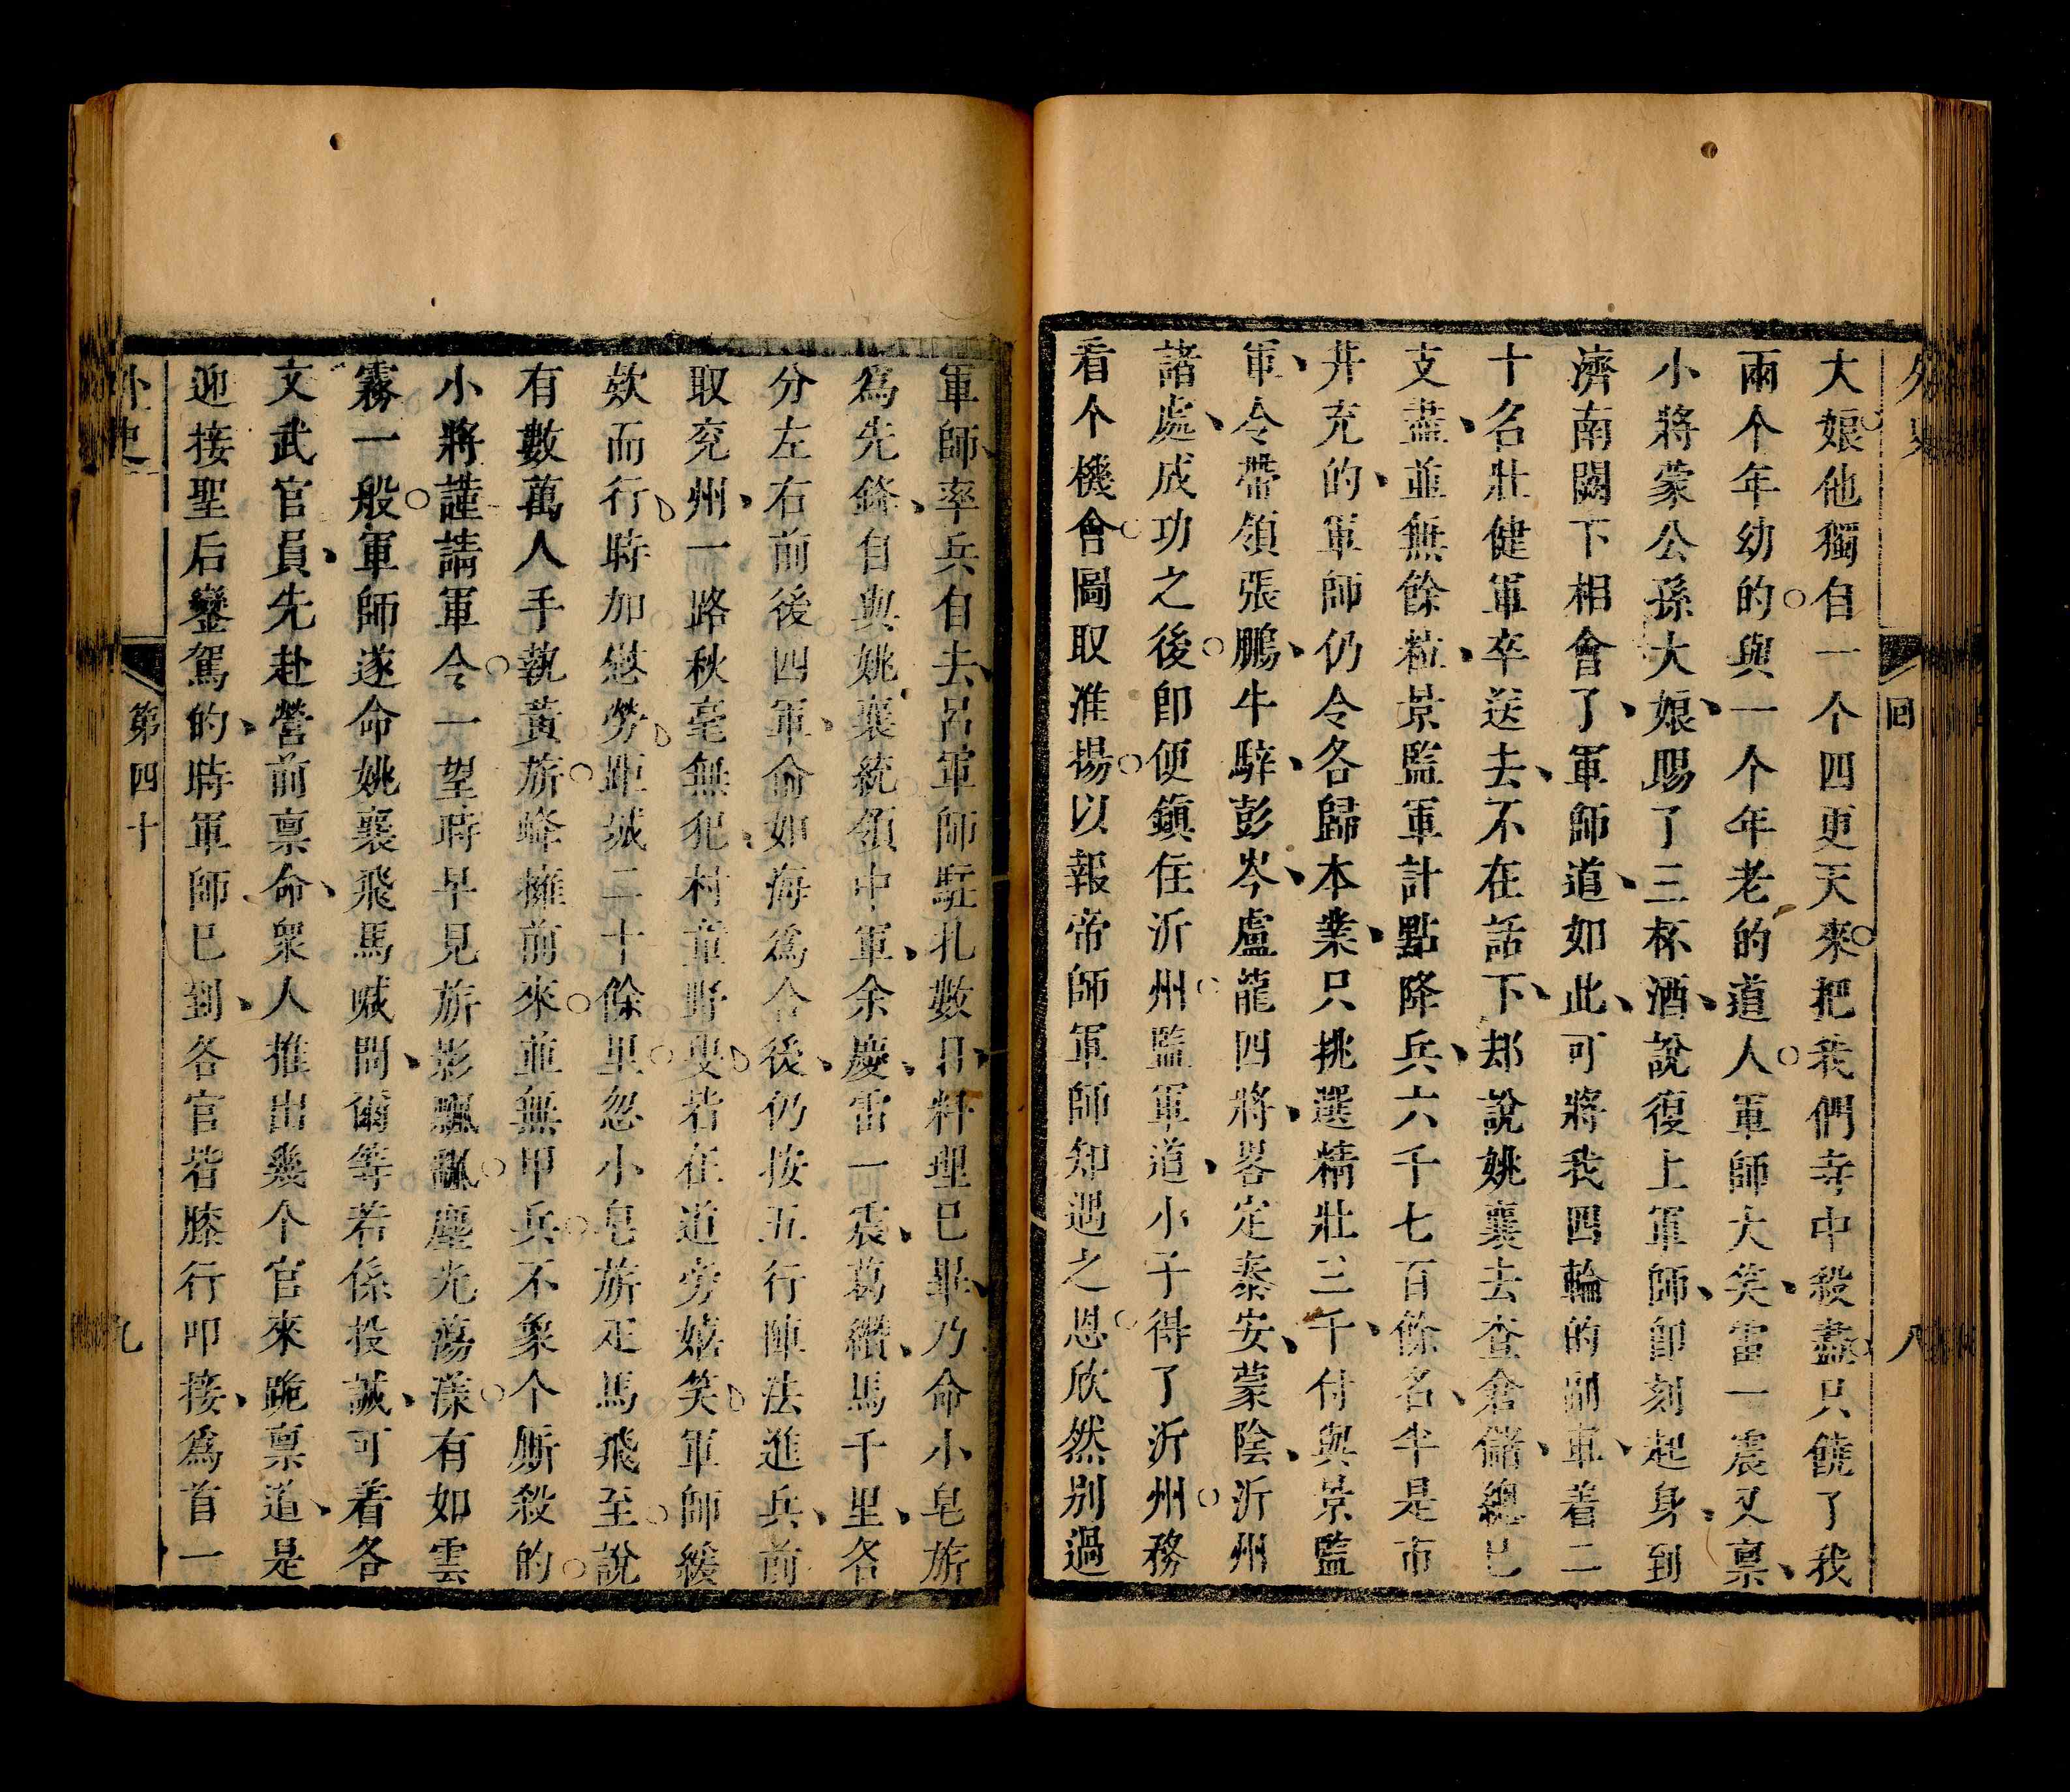 外史
回
八
大娘他獨自一个四更天來把我們寺中殺盡只饒了我
兩个年幼的與一个年老的道人軍師大笑雷一震又禀
小將蒙公孫大娘賜了三杯酒說復上軍師即刻起身到
濟南闕下相會了軍師道如此可將我四輪的副車着二
十名壯健軍卒送去不在話下却說姚襄去查倉儲總已
支盡並無餘粒景監軍計點降兵六千七百餘名半是市
井充的軍師仍令各歸本業只挑選精壯三千付與景監
軍令帶領張鵬牛騂彭岑盧龍四將畧定泰安蒙陰沂州
諸處成功之後即便鎮住沂州監軍道小子得了沂州務
看个機會圖取淮揚以報帝師軍師知遇之恩欣然別過
軍師率兵自去呂軍師駐扎數日料理已畢乃命小皂旂
爲先鋒自與姚襄統領中軍余慶雷一震葛纘馬千里各
分左右前後四軍俞如海爲合後仍按五行陣法進兵前
取兖州一路秋毫無犯村童野叟若在道旁嬉笑軍師緩
欵而行時加慰勞距城二十餘里忽小皂旂疋馬飛至說
有數萬人手執黃旂蜂擁前來並無甲兵不象个厮殺的
小將謹請軍令一望時早見旂影飄飄塵光蕩漾有如雲
霧一般軍師遂命姚襄飛馬喊問爾等若係投誠可着各
文武官員先赴營前禀命衆人推出幾个官來跪禀道是
迎接聖后鑾駕的時軍師已到各官皆膝行叩接爲首一
外史
第四十
九